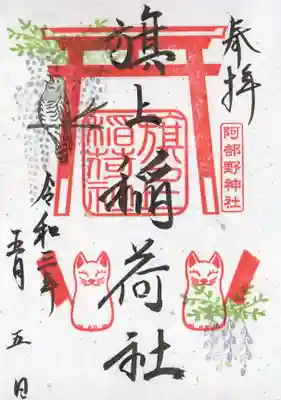 奉拝
阿部野神社
旗上稲荷社
旗上
稲荷社
令和二年
五月
五日